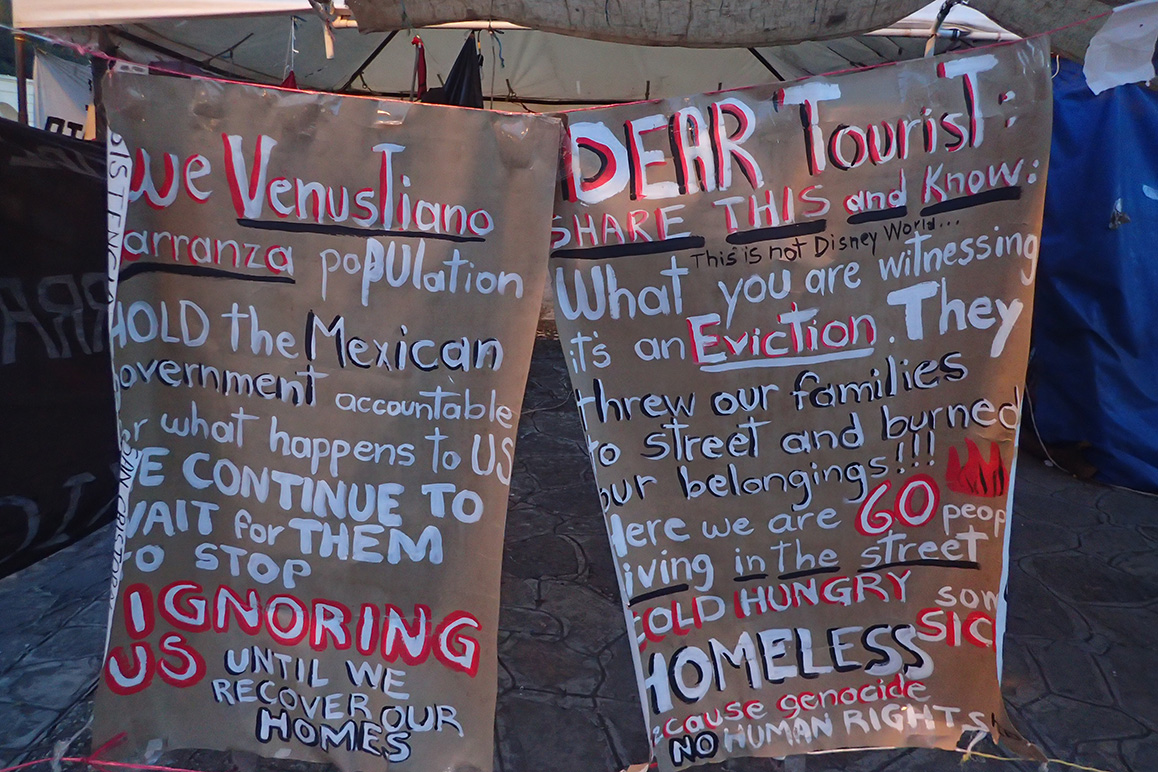 We VenusTiano
arranza popUlation
HOLD the Mexican
Government accountable
for what happens to US
WE CONTINUE TO
WAIT for THEM
to STOP
IGNORING
US UNTIL WE
RECOVER OUR
HOMES
DEAR TourisT:
SHARE THIS and Know:
This is not Disney World...
What you are witnessing
it's an EvicTion. They
threw our families
to street and burned
our belongings!!!
Here we are 60 peop
living in the street
COLD HUNGRY som
HOMELESS SIC
ecause genocide
NO HUMAN RIGHTS